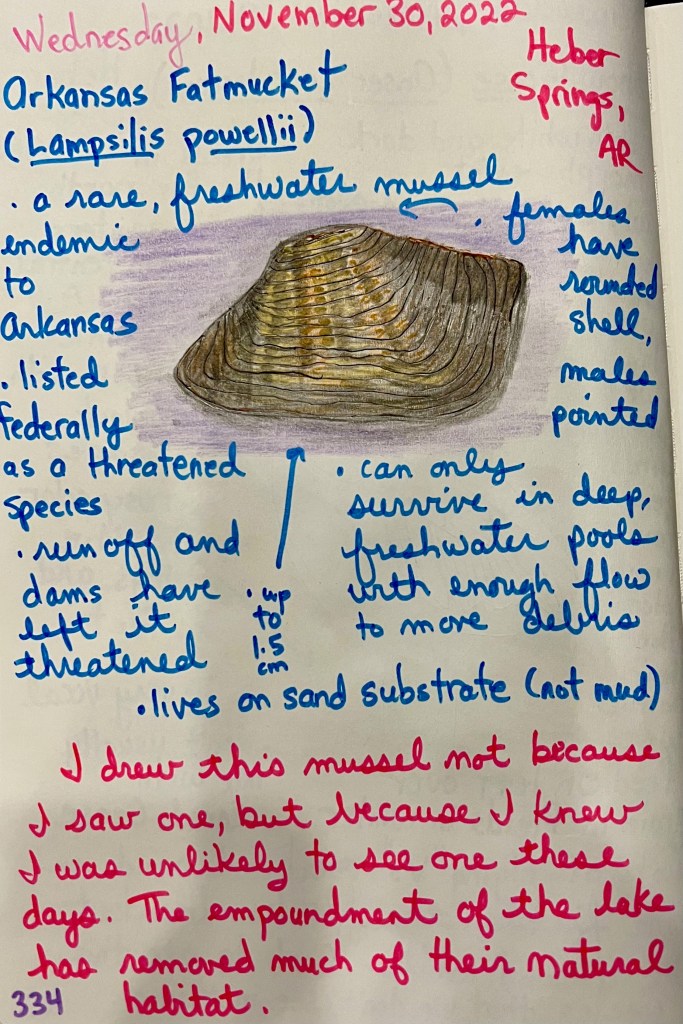 Wednesday, November 30, 2022
Heber
Springs,
AR
Arkansas Fatmucket
(Lampsilis powellii)
· a rare, freshwater mussel
endemic
to
Arkansas
· listed
federally
as a threatened
species
· run off and
dams have
left it
threatened
· females
have
rounded
shell,
males
pointed
· up
to
1.5
cm
· can only
survive in deep,
freshwater pools
with enough flow
to move debris
· lives on sand substrate (not mud)
I drew this mussel not because
I saw one, but because I knew
I was unlikely to see one these
days. The empoundment of the lake
has removed much of their natural
habitat.
334